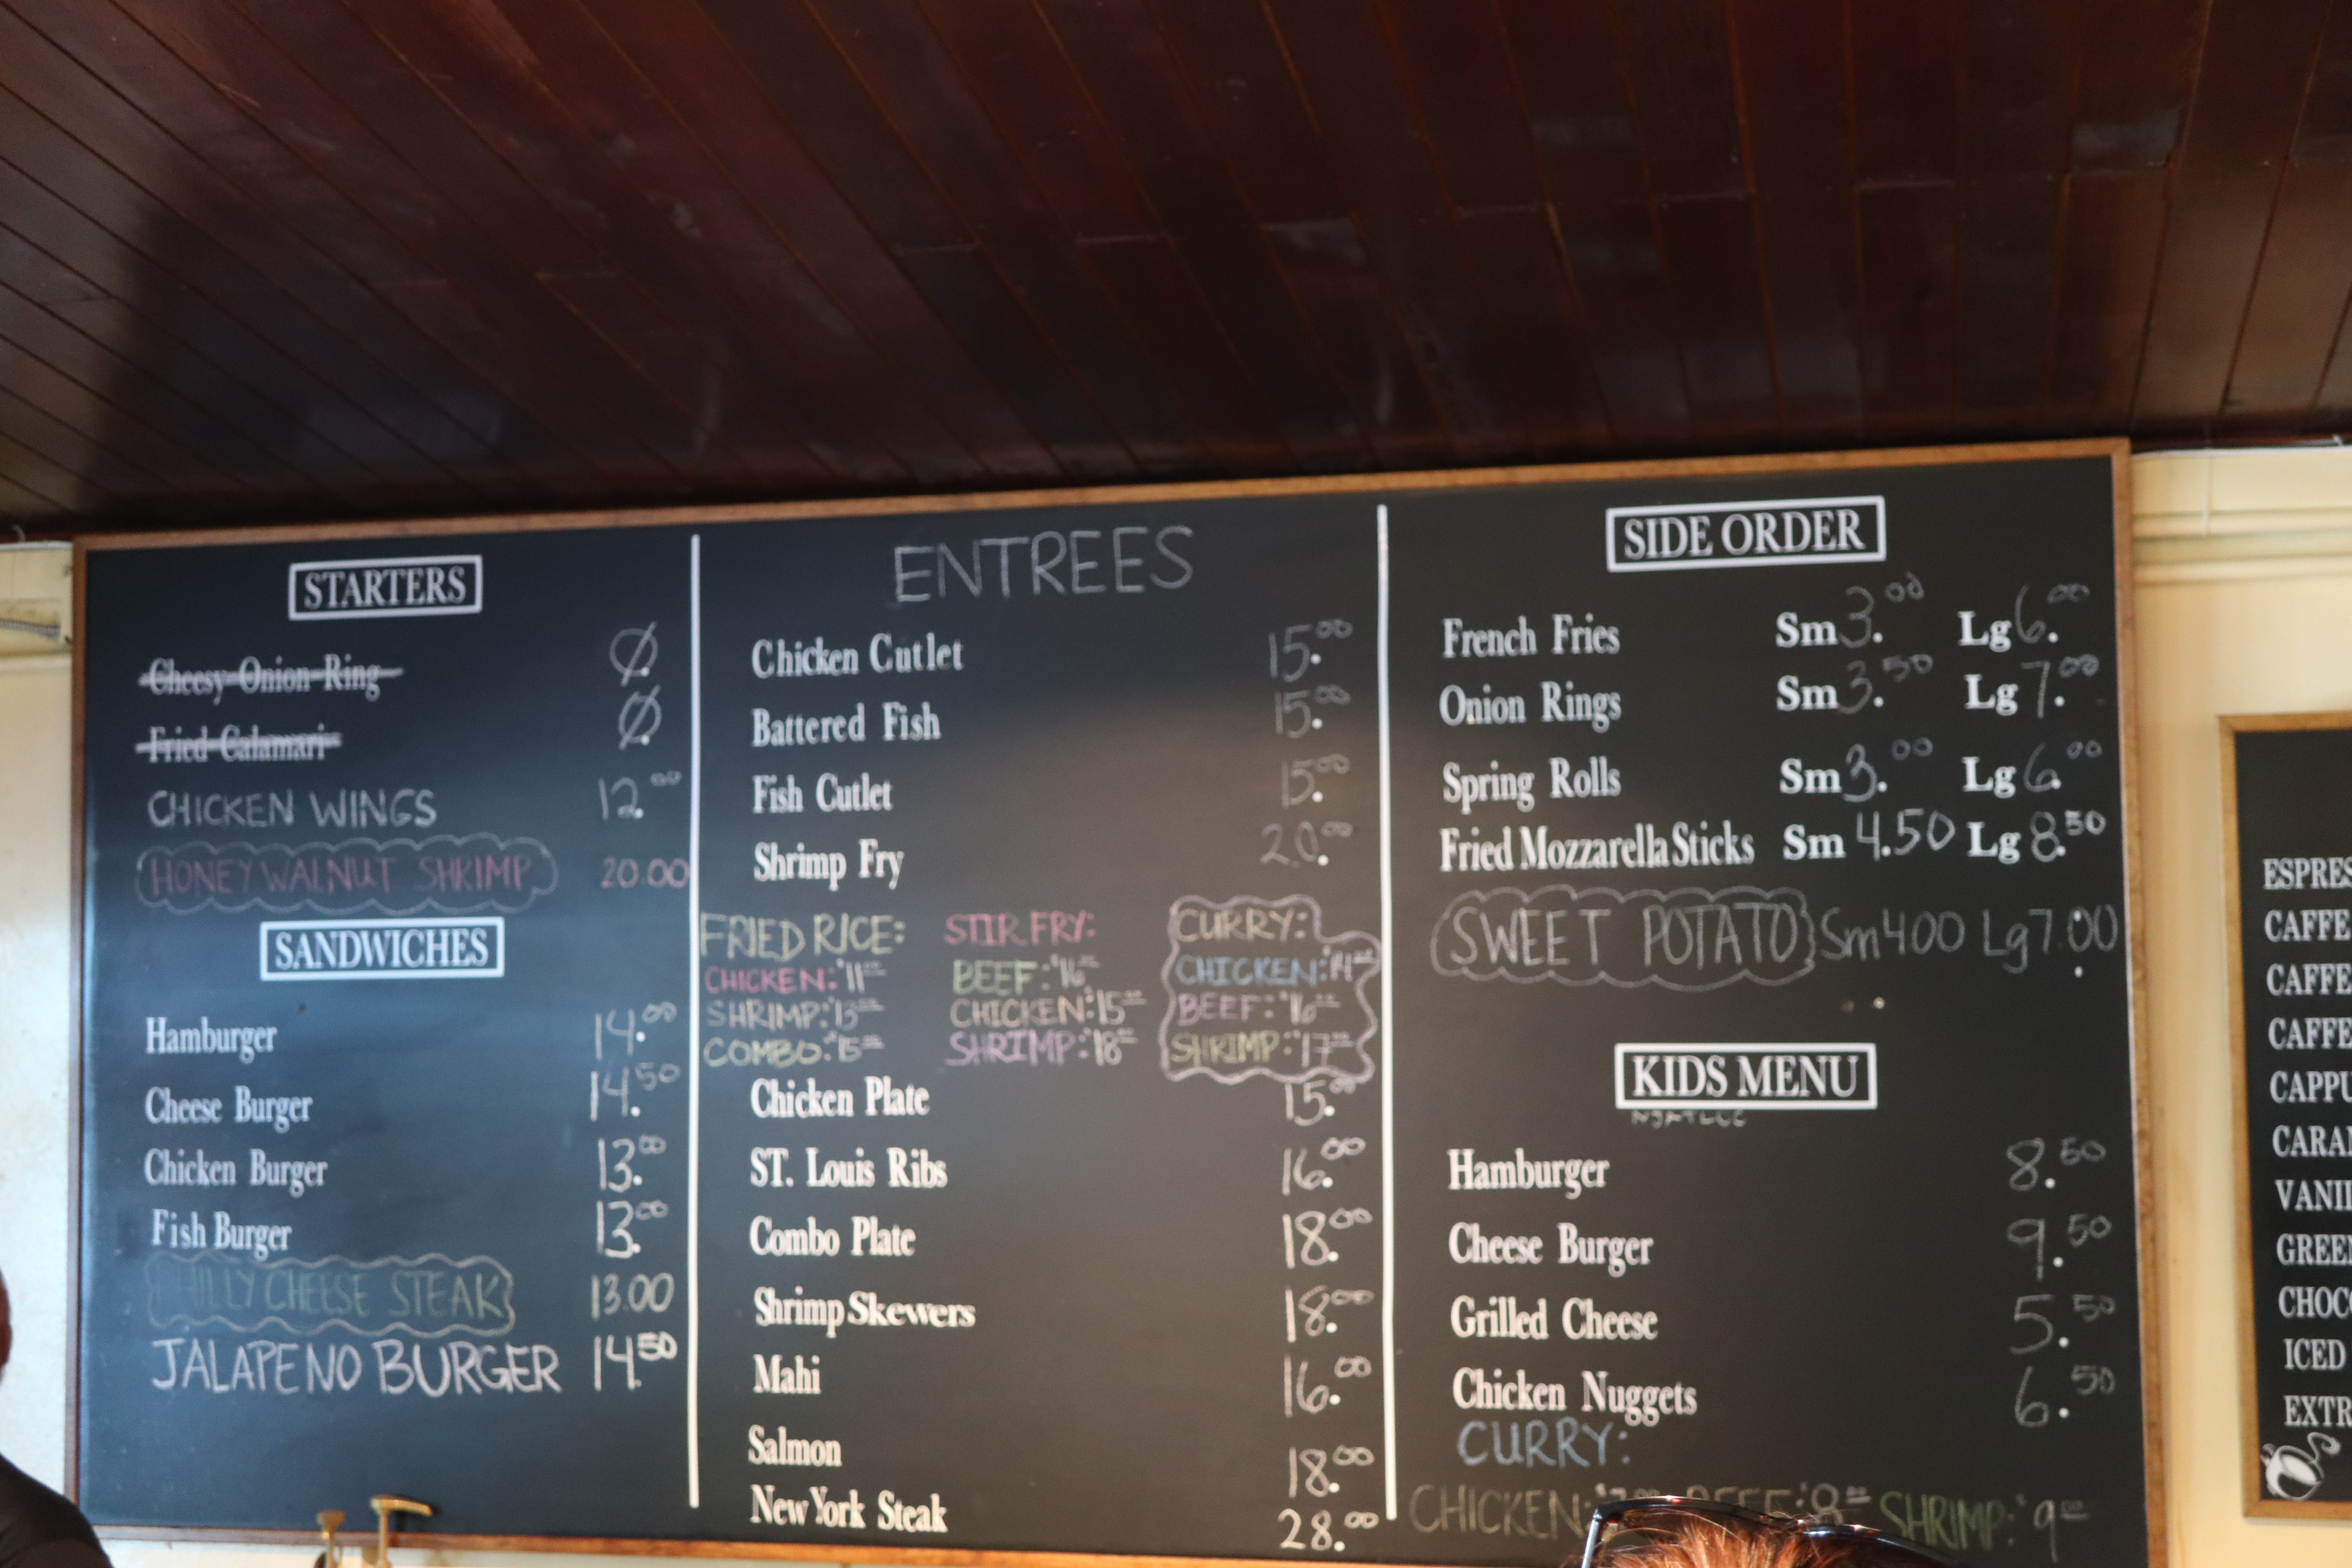 STARTERS
Cheesy Onion Ring Ø.
Fried Calamari Ø.
CHICKEN WINGS 12.00
HONEY WALNUT SHRIMP 20.00
SANDWICHES
Hamburger 14.00
Cheese Burger 14.50
Chicken Burger 13.00
Fish Burger 13.00
PHILLY CHEESE STEAK 13.00
JALAPENO BURGER 14.50
ENTREES
Chicken Cutlet 15.00
Battered Fish 15.00
Fish Cutlet 15.00
Shrimp Fry 20.00
FRIED RICE:
CHICKEN: $11.00
SHRIMP: $13.00
COMBO: $15.00
STIR FRY:
BEEF: $16.00
CHICKEN: $15.00
SHRIMP: $18.00
CURRY:
CHICKEN: $14.00
BEEF: $16.00
SHRIMP: $17.00
Chicken Plate 15.00
ST. Louis Ribs 16.00
Combo Plate 18.00
Shrimp Skewers 18.00
Mahi 16.00
Salmon 18.00
New York Steak 28.00
SIDE ORDER
French Fries Sm 3.00 Lg 6.00
Onion Rings Sm 3.50 Lg 7.00
Spring Rolls Sm 3.00 Lg 6.00
Fried Mozzarella Sticks Sm 4.50 Lg 8.50
SWEET POTATO Sm 4.00 Lg 7.00
KIDS MENU
Hamburger 8.50
Cheese Burger 9.50
Grilled Cheese 5.50
Chicken Nuggets 6.50
CURRY:
CHICKEN: BEEF: $8.00 SHRIMP: $9.00
ESPRES
CAFFE
CAFFE
CAFFE
CAPPU
CARAM
VANIL
GREEN
CHOCO
ICED
EXTR